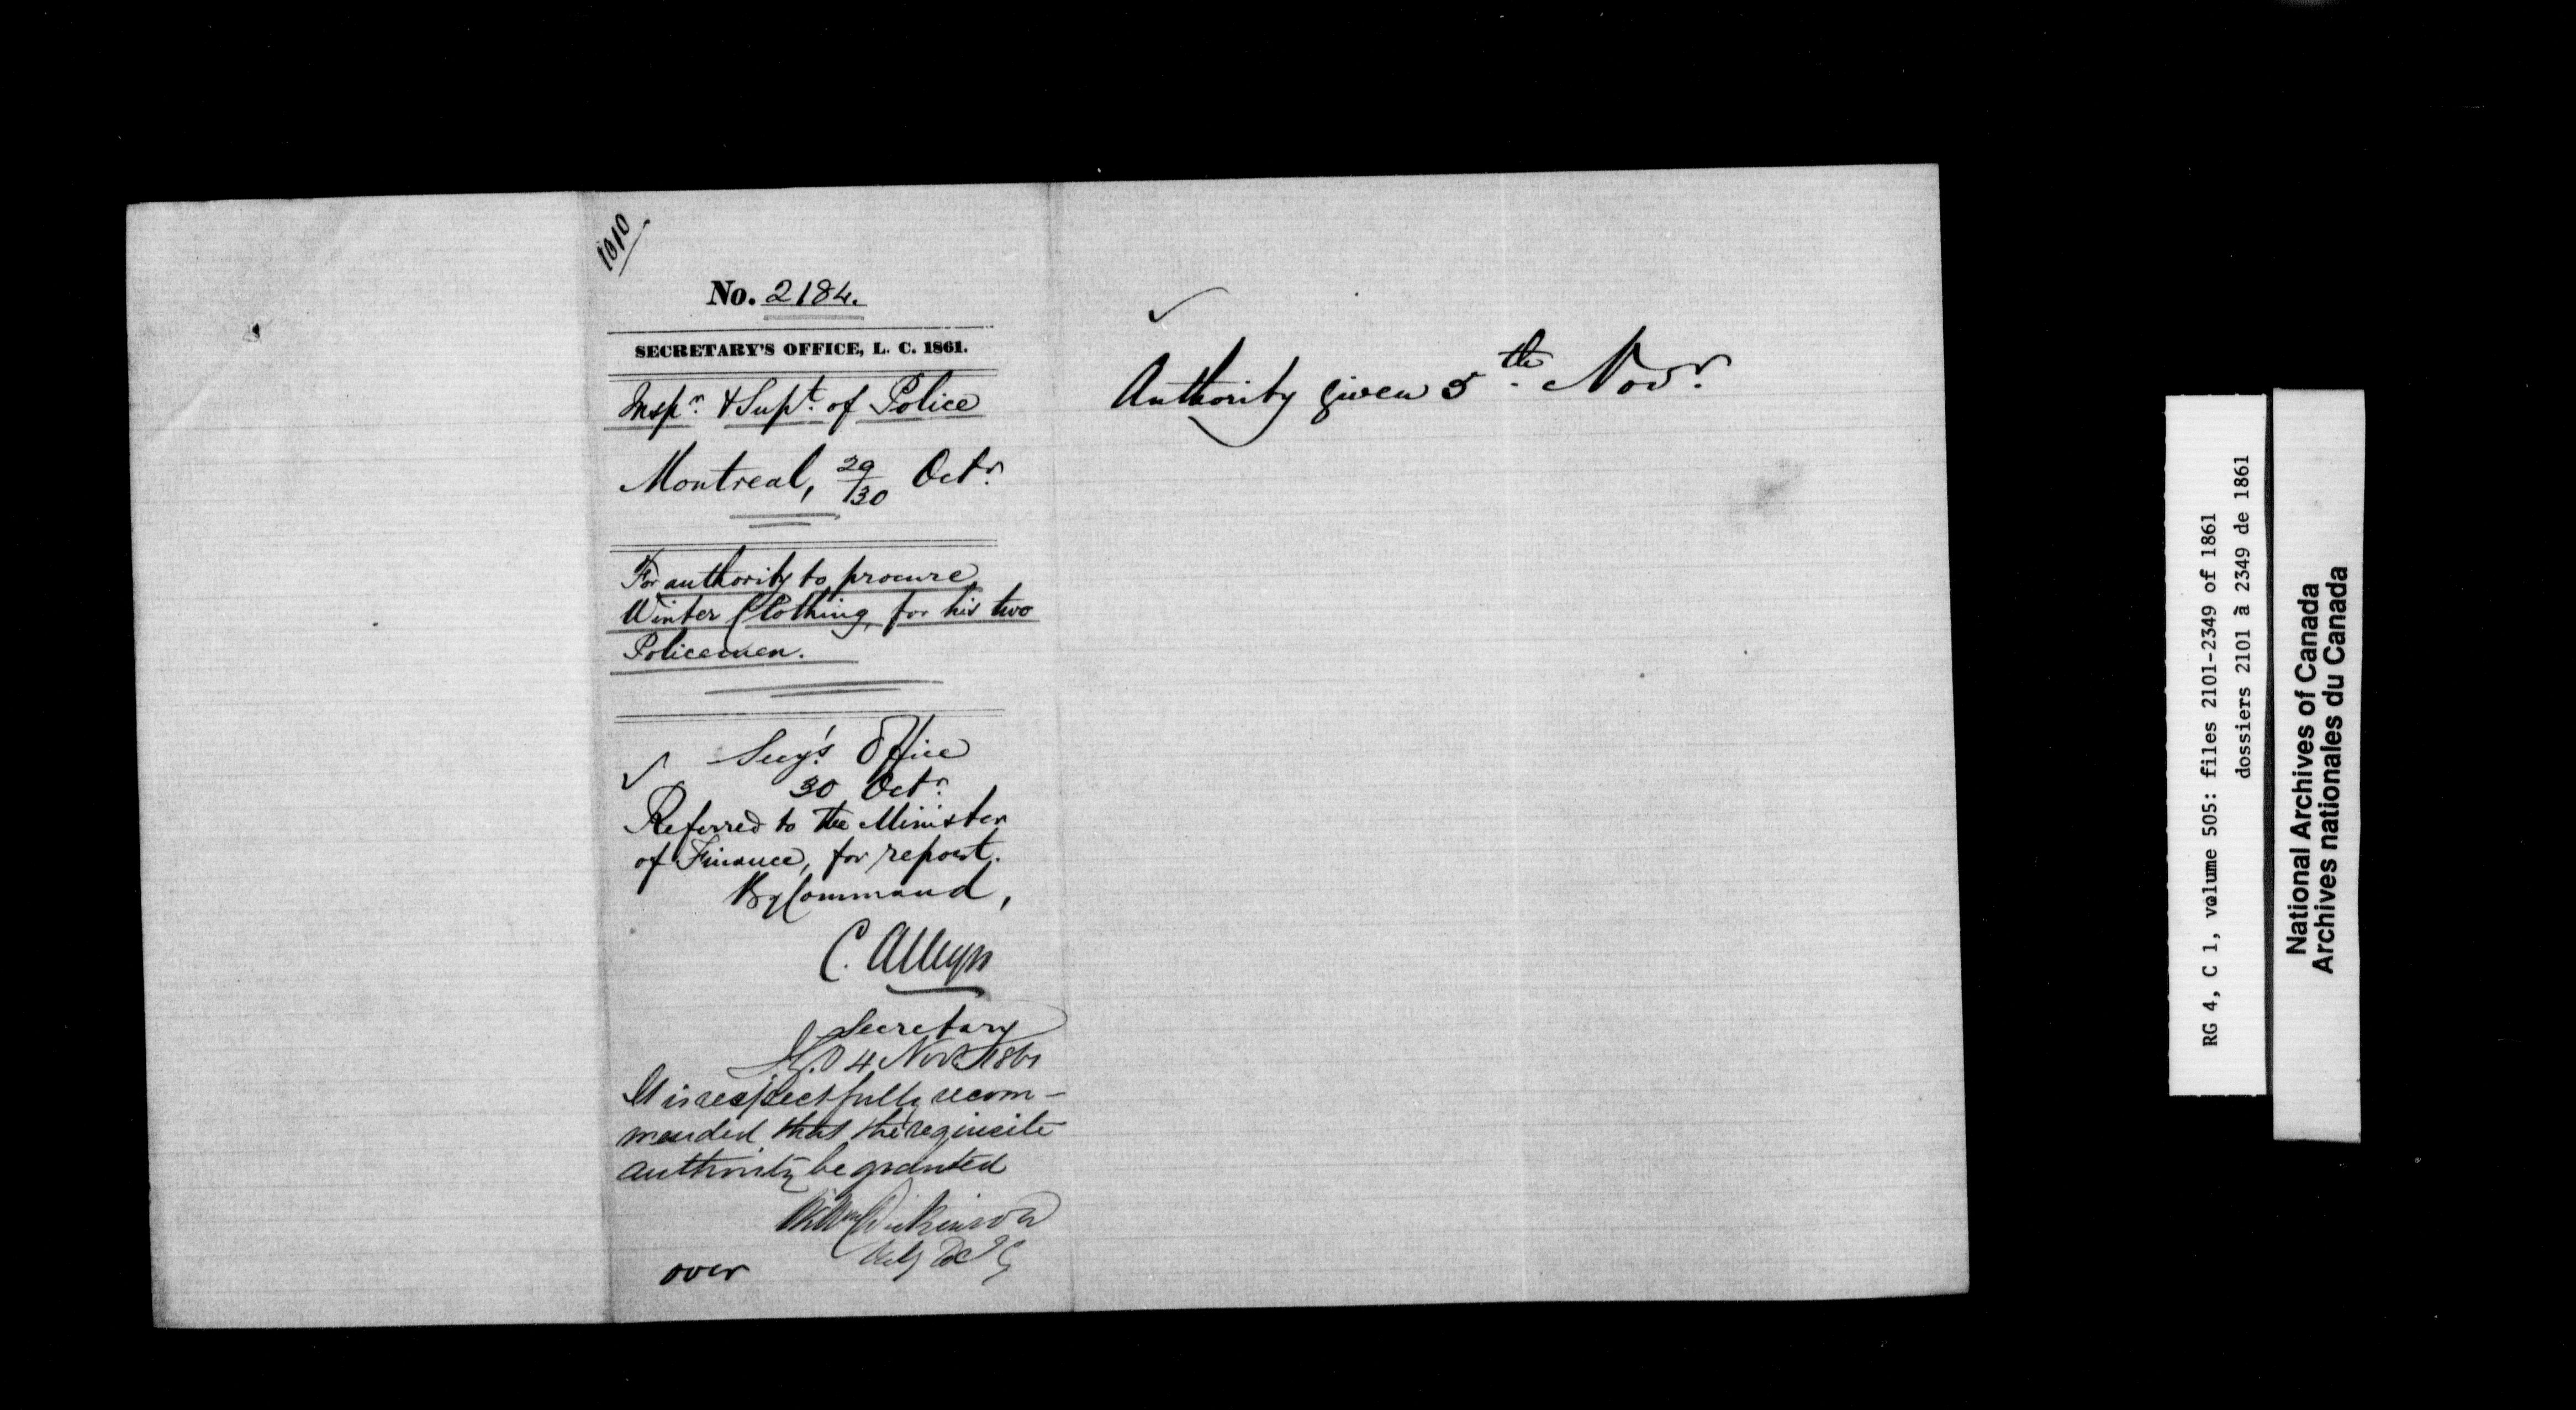 1010
No. 2184.
SECRETARY'S OFFICE, L. C. 1861.
Inspr. & Supt. of Police
Montreal, 29/30 Octr.
For authority to procure
Winter Clothing, for his two
Policemen.
Secy's. Office
30 Octr.
Referred to the Minister
of Finance, for report.
By Command,
C. Alleyn
Secretary
4 Nov 1861
It is respectfully recom-
mended that the requisite
authority be granted
Wm Dickinson
over
Authority given 5th. Novr.
RG 4, C 1, volume 505: files 2101-2349 of 1861
dossiers 2101 à 2349 de 1861
National Archives of Canada
Archives nationales du Canada